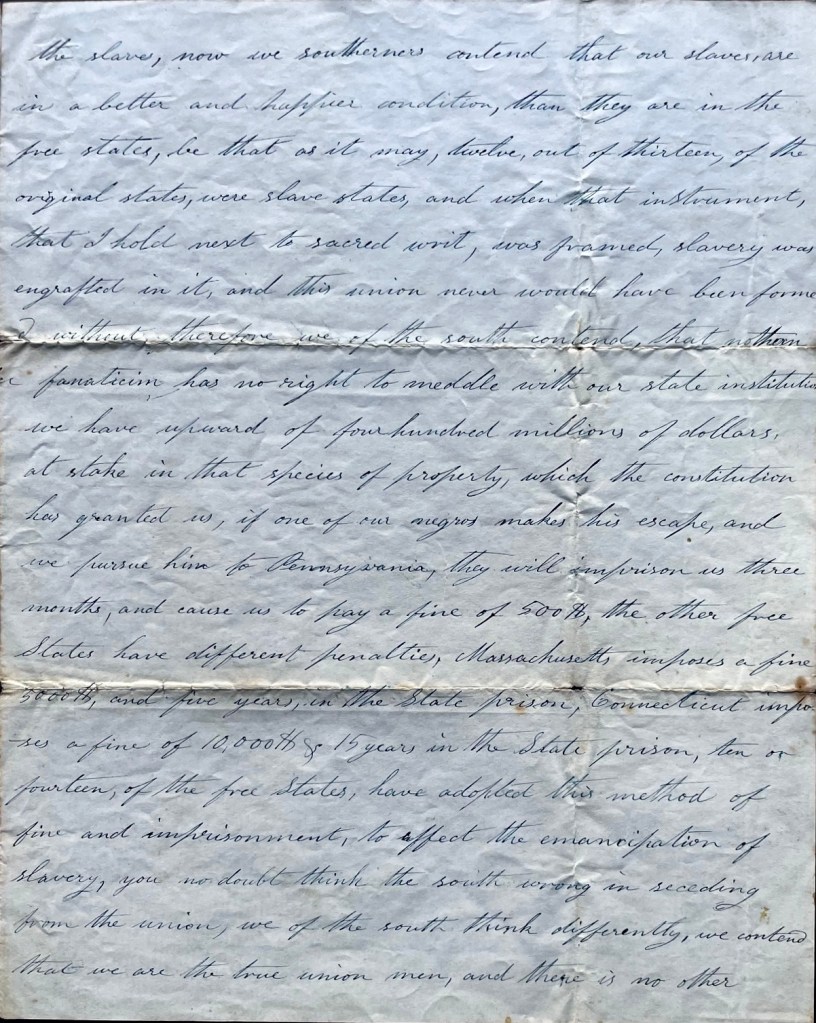 the slave, now we southerners contend that our slaves, are
in a better and happier condition, than they are in the
free states, be that as it may, twelve, out of thirteen, of the
original states, were slave states, and when that instrument,
that I hold next to sacred writ, was framed, slavery was
engrafted in it, and this union never would have been forme
d without, therefore we of the south contend, that nothern
fanaticim has no right to meddle with our state institutio
we have upward of four hundred millions of dollars,
at stake in that species of property, which the constitution
has granted us, if one of our negros makes his escape, and
we pursue him to Pennsylvania, they will imprison us three
months, and cause us to pay a fine of 500 $, the other free
States have different penalties, Massachusetts imposes a fine
5000 $, and five years, in the State prison, Connecticut impo
-ses a fine of 10,000 $ & 15 years in the State prison, ten or
fourteen, of the free States, have adopted this method of
fine and imprisonment, to effect the emancipation of
slavery, you no doubt think the south wrong in seceding
from the union, we of the south think differently, we contend
that we are the true union men, and there is no other